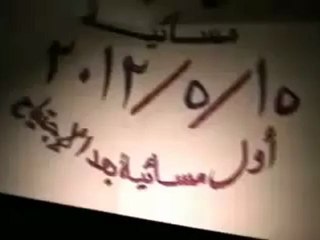 مسائية
٢٠١٢/٥/١٥
أول مسائية بعد الاجتياح